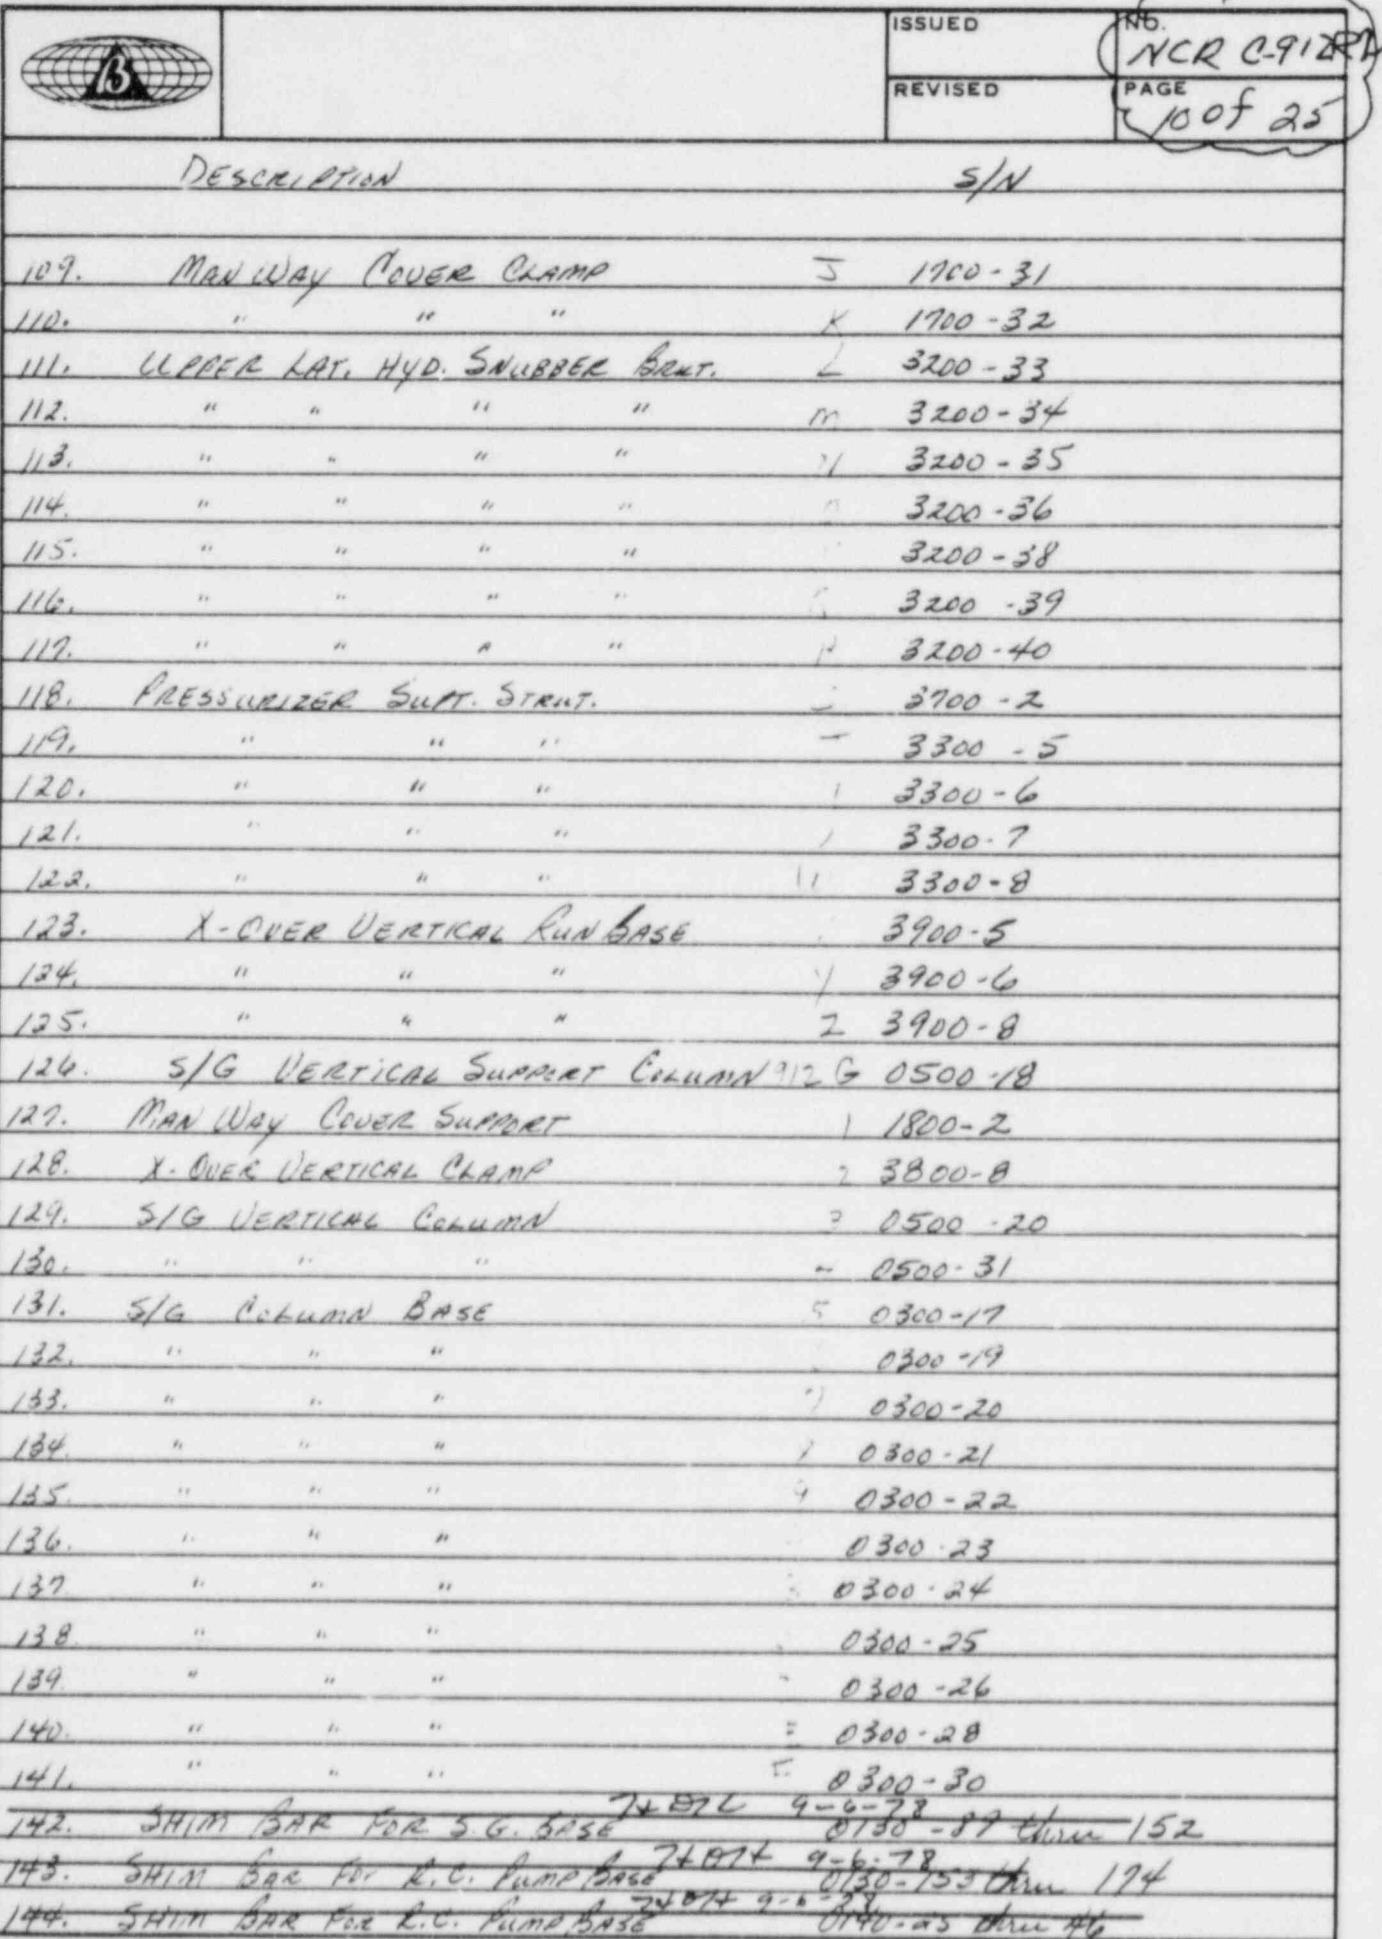 B
ISSUED
NO.
NCR C-912R2
REVISED
PAGE
10 of 25
DESCRIPTION S/N
109. MAN WAY COVER CLAMP J 1700-31
110. " " " K 1700-32
111. UPPER LAT. HYD. SNUBBER BRKT. L 3200-33
112. " " " " M 3200-34
113. " " " " N 3200-35
114. " " " " 3200-36
115. " " " " 3200-38
116. " " " " 3200-39
117. " " " " 3200-40
118. PRESSURIZER SUPT. STRUT. 3700-2
119. " " " 3300-5
120. " " " 3300-6
121. " " " 3300-7
122. " " " 3300-8
123. X-OVER VERTICAL RUN BASE 3900-5
124. " " " Y 3900-6
125. " " " Z 3900-8
126. S/G VERTICAL SUPPORT COLUMN 912 G 0500-18
127. MAN WAY COVER SUPPORT 1 1800-2
128. X-OVER VERTICAL CLAMP 2 3800-8
129. S/G VERTICAL COLUMN 3 0500-20
130. " " " 0500-31
131. S/G COLUMN BASE 5 0300-17
132. " " " 0300-19
133. " " " 7 0300-20
134. " " " 0300-21
135. " " " 9 0300-22
136. " " " 0300-23
137 " " " 0300-24
138 " " " 0300-25
139. " " " 0300-26
140. " " " 0300-28
141. " " " 0300-30
9-6-78
142. SHIM BAR FOR S.G. BASE 0130-89 thru 152
9-6-78
143. SHIM BAR FOR R.C. PUMP BASE 0130-153 thru 174
9-6-78
144. SHIM BAR FOR R.C. PUMP BASE 0140-25 thru 46